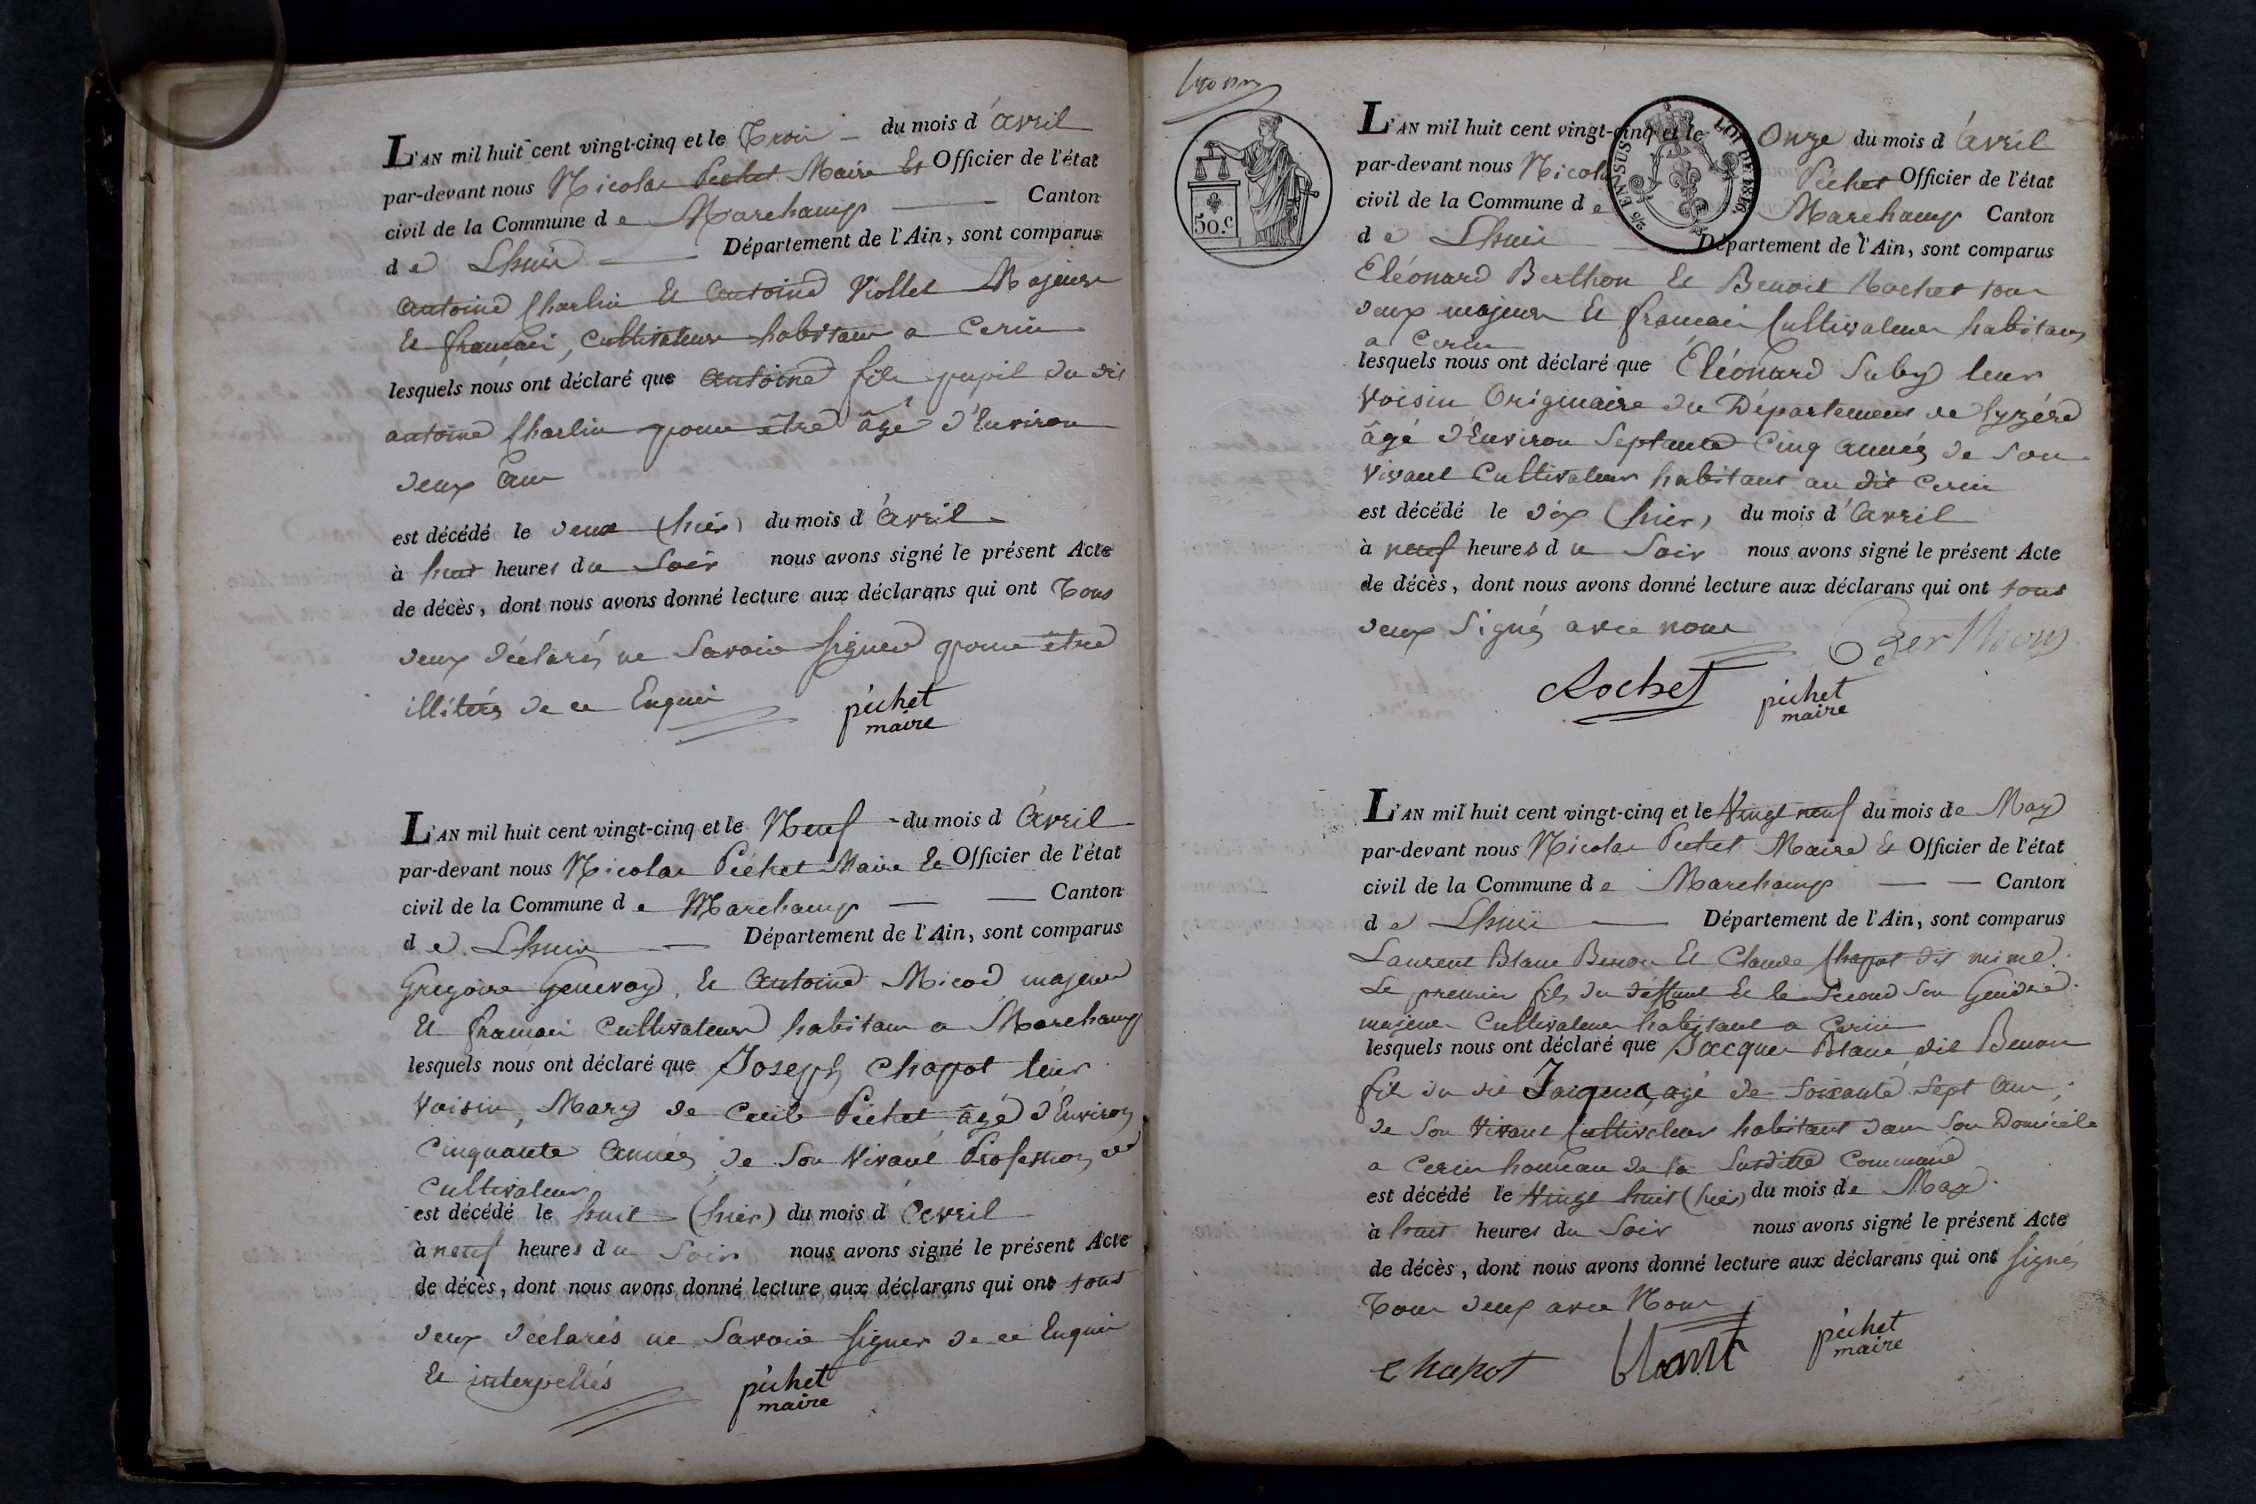 L'AN mil huit cent vingt-cinq et le Trois du mois d'avril
par-devant nous Nicolas Pichet Maire Et Officier de l'état
civil de la Commune de Marchamp Canton
de Lhuis Département de l'Ain, sont comparus
antoine Charlin Et antoine Viollet Majeurs
Et francais, Cultivateurs habitans a Cerin
lesquels nous ont déclaré que antoine fils pupil du dit
antoine Charlin pour être âgé d'Environ
deux ans
est décédé le deux (hier) du mois d'avril
à huit heures du Soir nous avons signé le présent Acte
de décès, dont nous avons donné lecture aux déclarans qui ont Tous
deux déclarés ne Savoir Signer pour être
illitérés de ce Enquis
pichet
maire
L'AN mil huit cent vingt-cinq et le Neuf du mois d'avril
par-devant nous Nicolas Pichet Maire Et Officier de l'état
civil de la Commune de Marchamp Canton
de Lhuis Département de l'Ain, sont comparus
Gregoire Genevay, Et antoine Micod majeurs
Et francais Cultivateurs habitans a Marchamp
lesquels nous ont déclaré que Joseph Chapot leur
Voisin, Mary de Cecile Pichet âgé d'Environ
Cinquante années, de Son Vivant Profession de
Cultivateur
est décédé le huit (hier) du mois d'avril
à neuf heures du Soir nous avons signé le présent Acte
de décès, dont nous avons donné lecture aux déclarans qui ont tous
deux déclarés ne Savoir Signer de ce Enquis
Et interpellés
pichet
maire
50.C
25 EN SUS LOI DE 1816
L'AN mil huit cent vingt-cinq et le Onze du mois d'avril
par-devant nous Nicolas Pichet Officier de l'état
civil de la Commune de Marchamp Canton
de Lhuis Département de l'Ain, sont comparus
Eléonard Berthon Et Benoit Rochet tous
deux majeurs Et francais Cultivateurs habitans
a Cerin
lesquels nous ont déclaré que Éléonard Suby leur
Voisin Originaire du Département de Lyzére
âgé d'Environ Septante Cinq années de Son
Vivant Cultivateur habitant au dit Cerin
est décédé le dix (hier) du mois d'avril
à neuf heures du Soir nous avons signé le présent Acte
de décès, dont nous avons donné lecture aux déclarans qui ont tous
deux Signés avec nous
Berthon
Rochet pichet
maire
L'AN mil huit cent vingt-cinq et le Vingt neuf du mois de May
par-devant nous Nicolas Pichet Maire Et Officier de l'état
civil de la Commune de Marchamp Canton
de Lhuis Département de l'Ain, sont comparus
Laurent Blanc Benon Et Claude Chapot dit mime
Le premier fils du deffunt Et le Second Son Gendre
majeurs Cultivateurs habitant a Cerin
lesquels nous ont déclaré que Jacques Blanc dit Benon
fils du dit Jacques, agé de Soixante Sept ans,
de Son Vivant Cultivateur habitant dans Son Domicile
a Cerin hameau de la Susditte Commune
est décédé le Vingt huit (hier) du mois de May
à huit heures du Soir nous avons signé le présent Acte
de décès, dont nous avons donné lecture aux déclarans qui ont Signés
Tous deux avec Nous
Chapot blanc pichet
maire